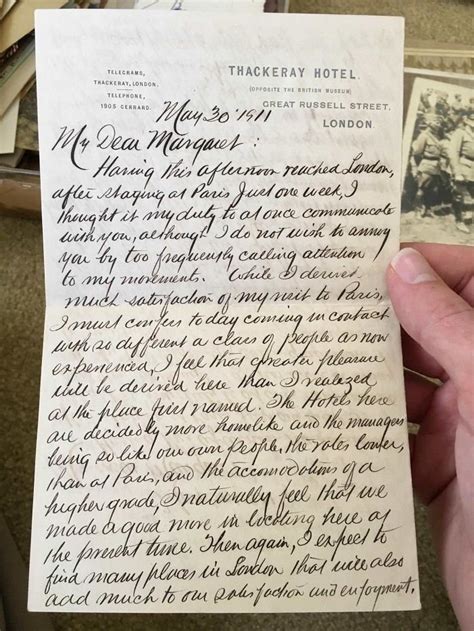 TELEGRAMS,
THACKERAY, LONDON.
TELEPHONE,
1905 GERRARD.
THACKERAY HOTEL.
(OPPOSITE THE BRITISH MUSEUM)
GREAT RUSSELL STREET,
LONDON.
May 30 1911
My Dear Margaret:
Having this afternoon reached London,
after staying at Paris just one week, I
thought it my duty to at once communicate
with you, although I do not wish to annoy
you by too frequently calling attention
to my movements. While I derived
much satisfaction of my visit to Paris,
I must confess to day coming in contact
with so different a class of people as now
experienced, I feel that greater pleasure
will be derived here than I realized
at the place first named. The Hotels here
are decidedly more homelike and the managers
being so like our own people, the rates lower,
than at Paris, and the accomodations of a
higher grade, I naturally feel that we
made a good move in locating here at
the present time. Then again, I expect to
find many places in London that will also
add much to our satisfaction and enjoyment.